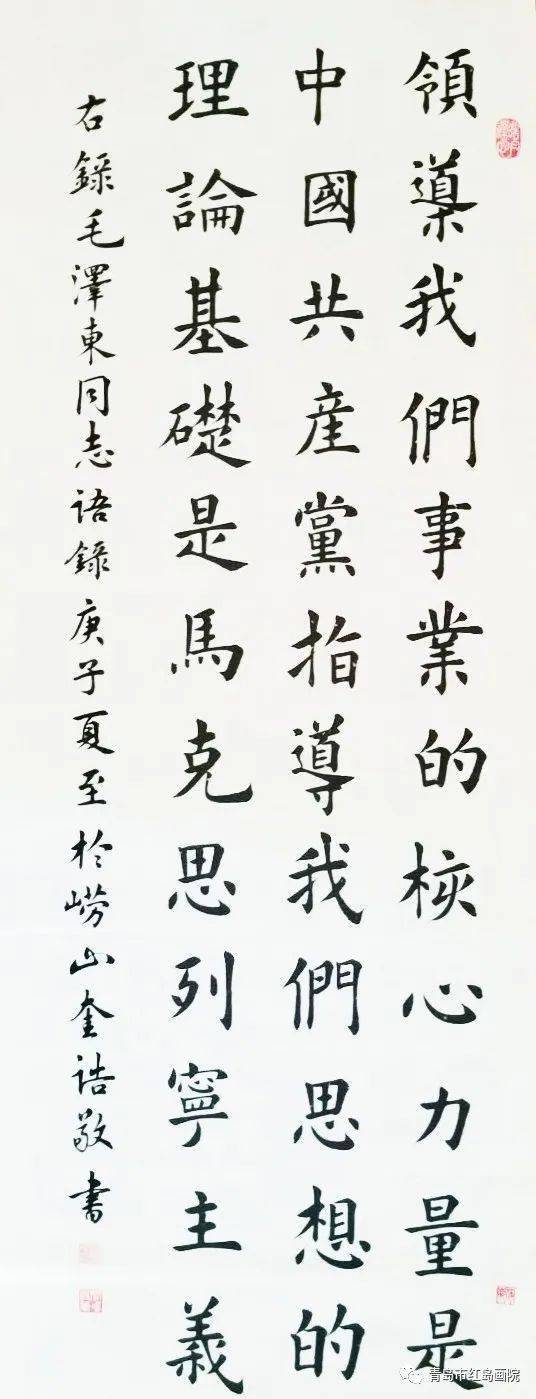 領導我們事業的核心力量是
中國共産黨指導我們思想的
理論基礎是馬克思列寧主義
右録毛澤東同志語録庚子夏至於嶗山奎誥敬書
青岛市红岛画院